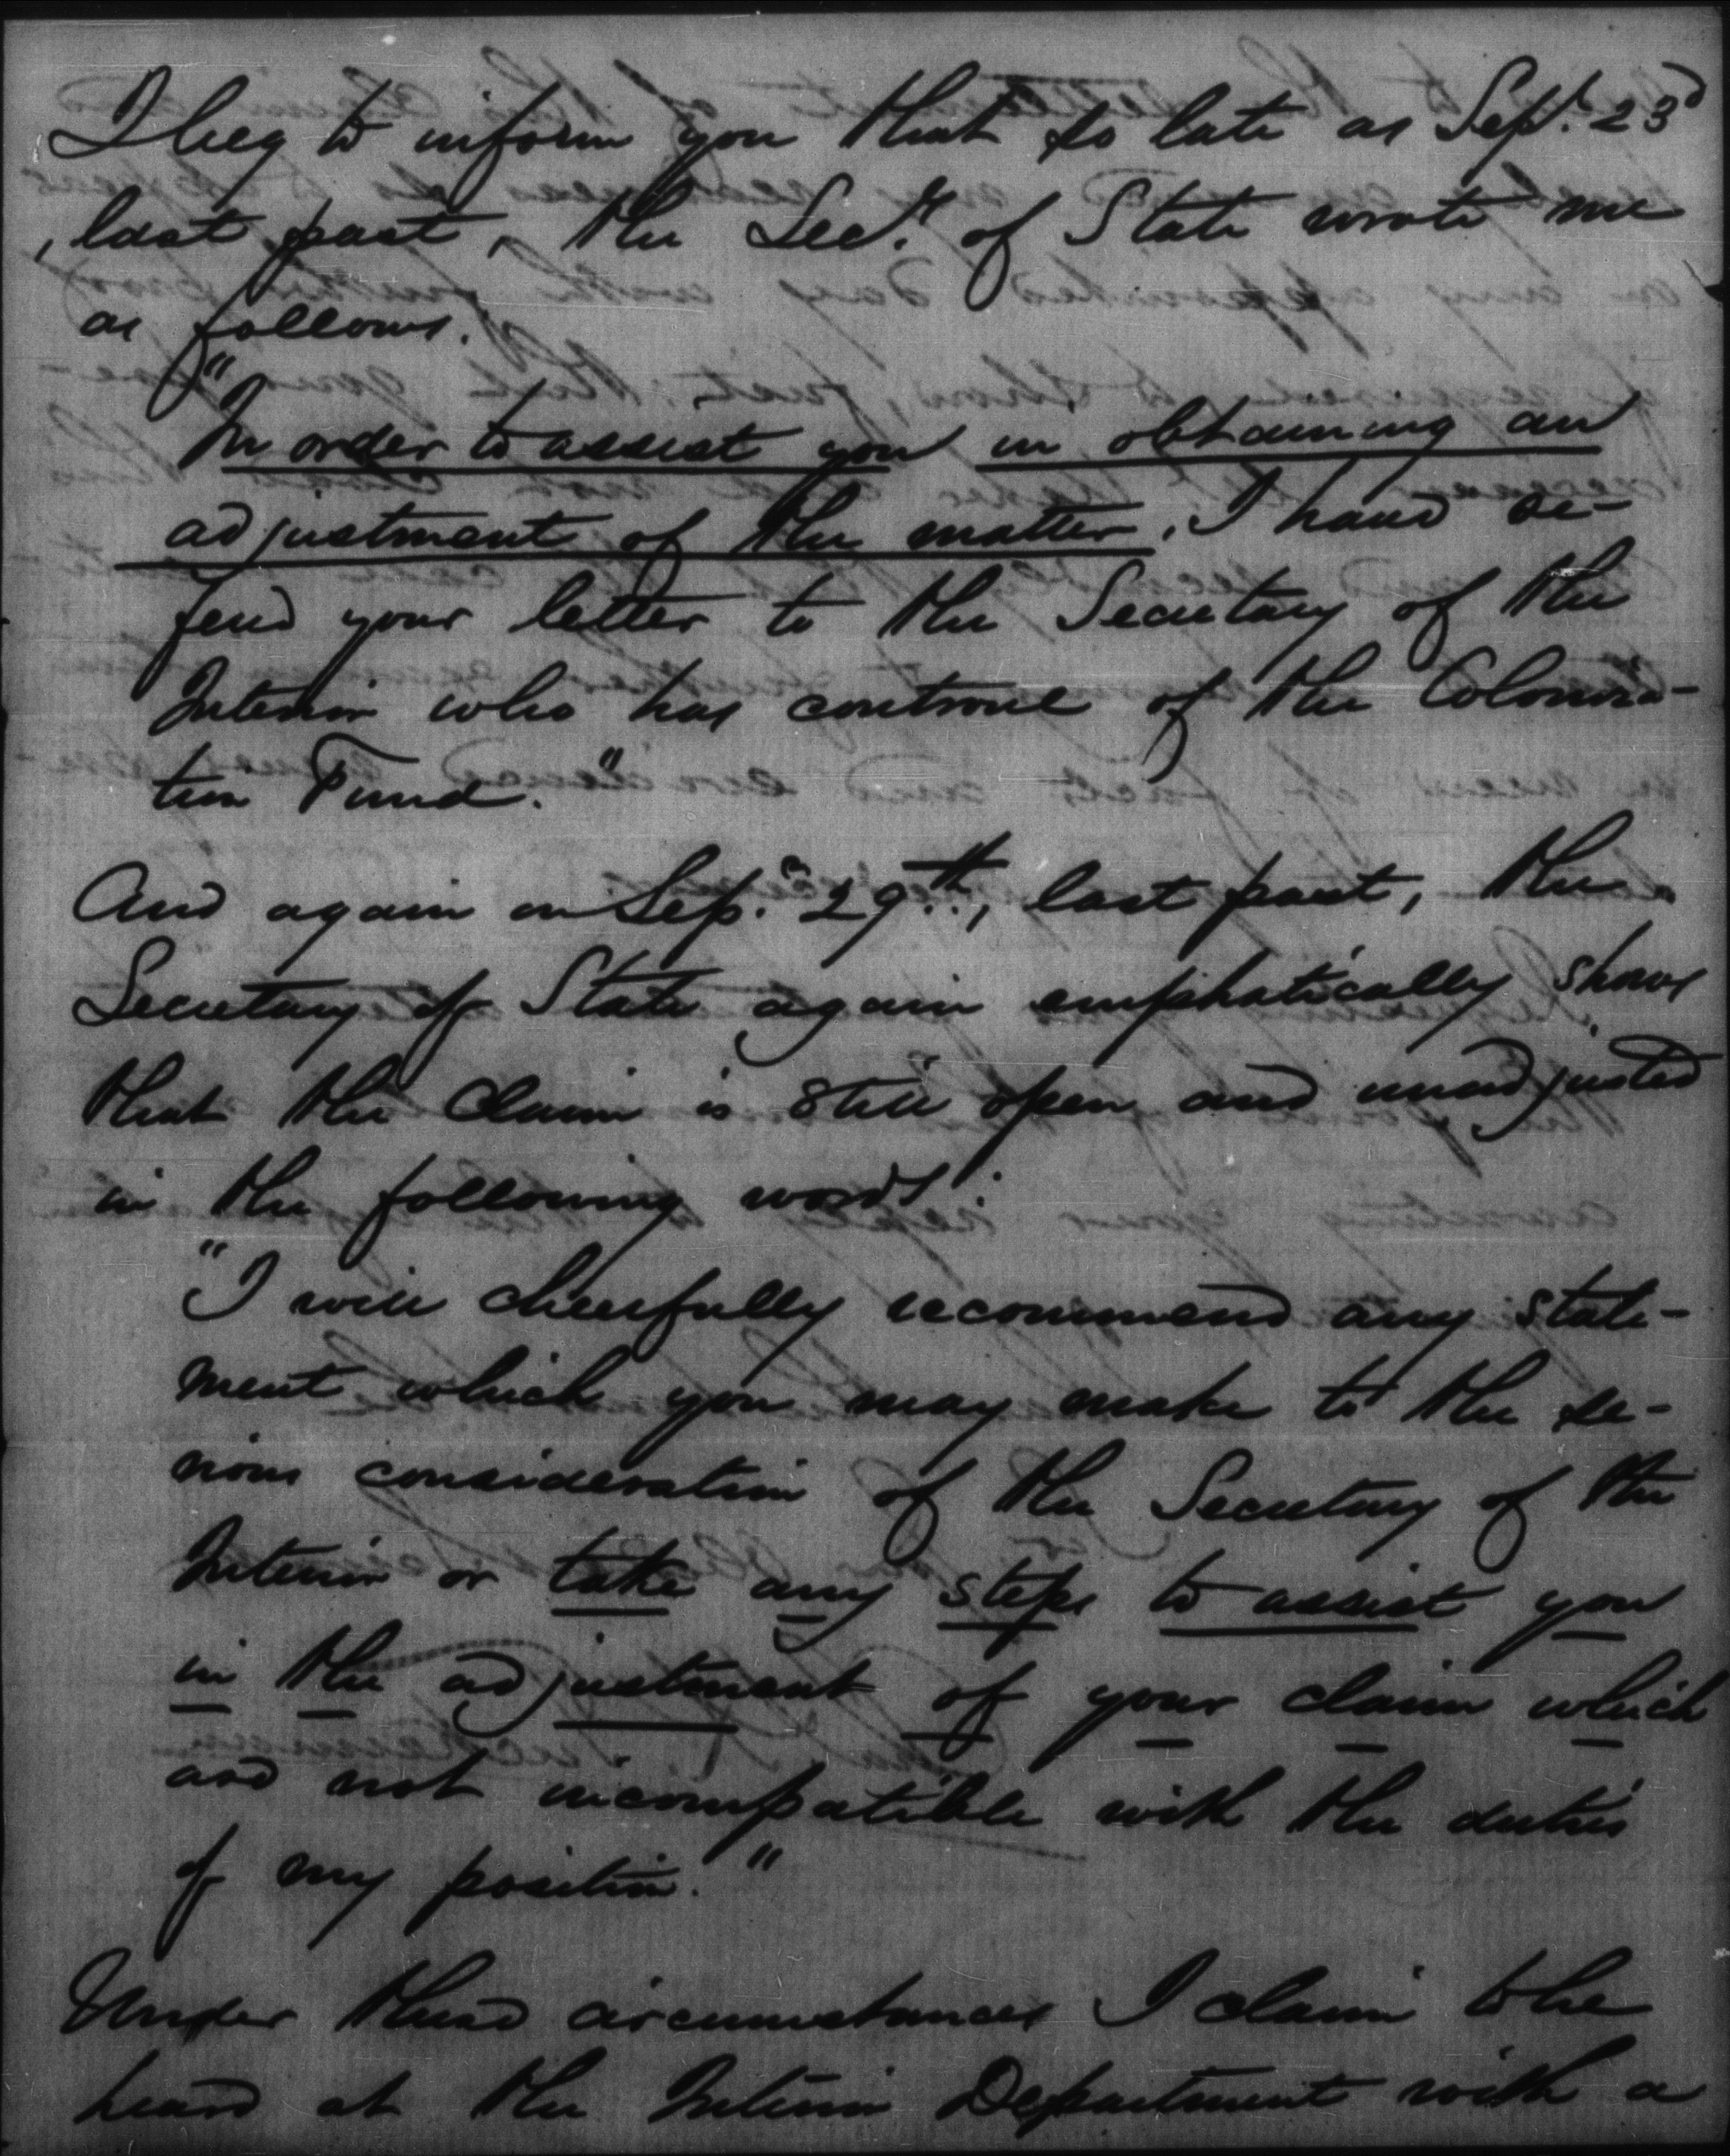 I beg to inform you that so late as Sept. 23d
last past, the Secy. of State wrote me
as follows.
"In order to assist you in obtaining an
adjustment of the matter, I have re-
fered your letter to the Secretary of the
Interior who has controul of the Coloniza-
tion Fund."
And again on Sep. 29th., last past, the
Secretary of State again emphatically shows
that the claim is still open and unadjusted
in the following words:
"I will cheerfully recommend any state-
ment which you may make to the se-
rious consideration of the Secretary of the
Interior or take any steps to assist you
in the adjustment of your claim which
are not incompatible with the duties
of my position."
Under these circumstances I claim to be
heard at the Interior Department with a